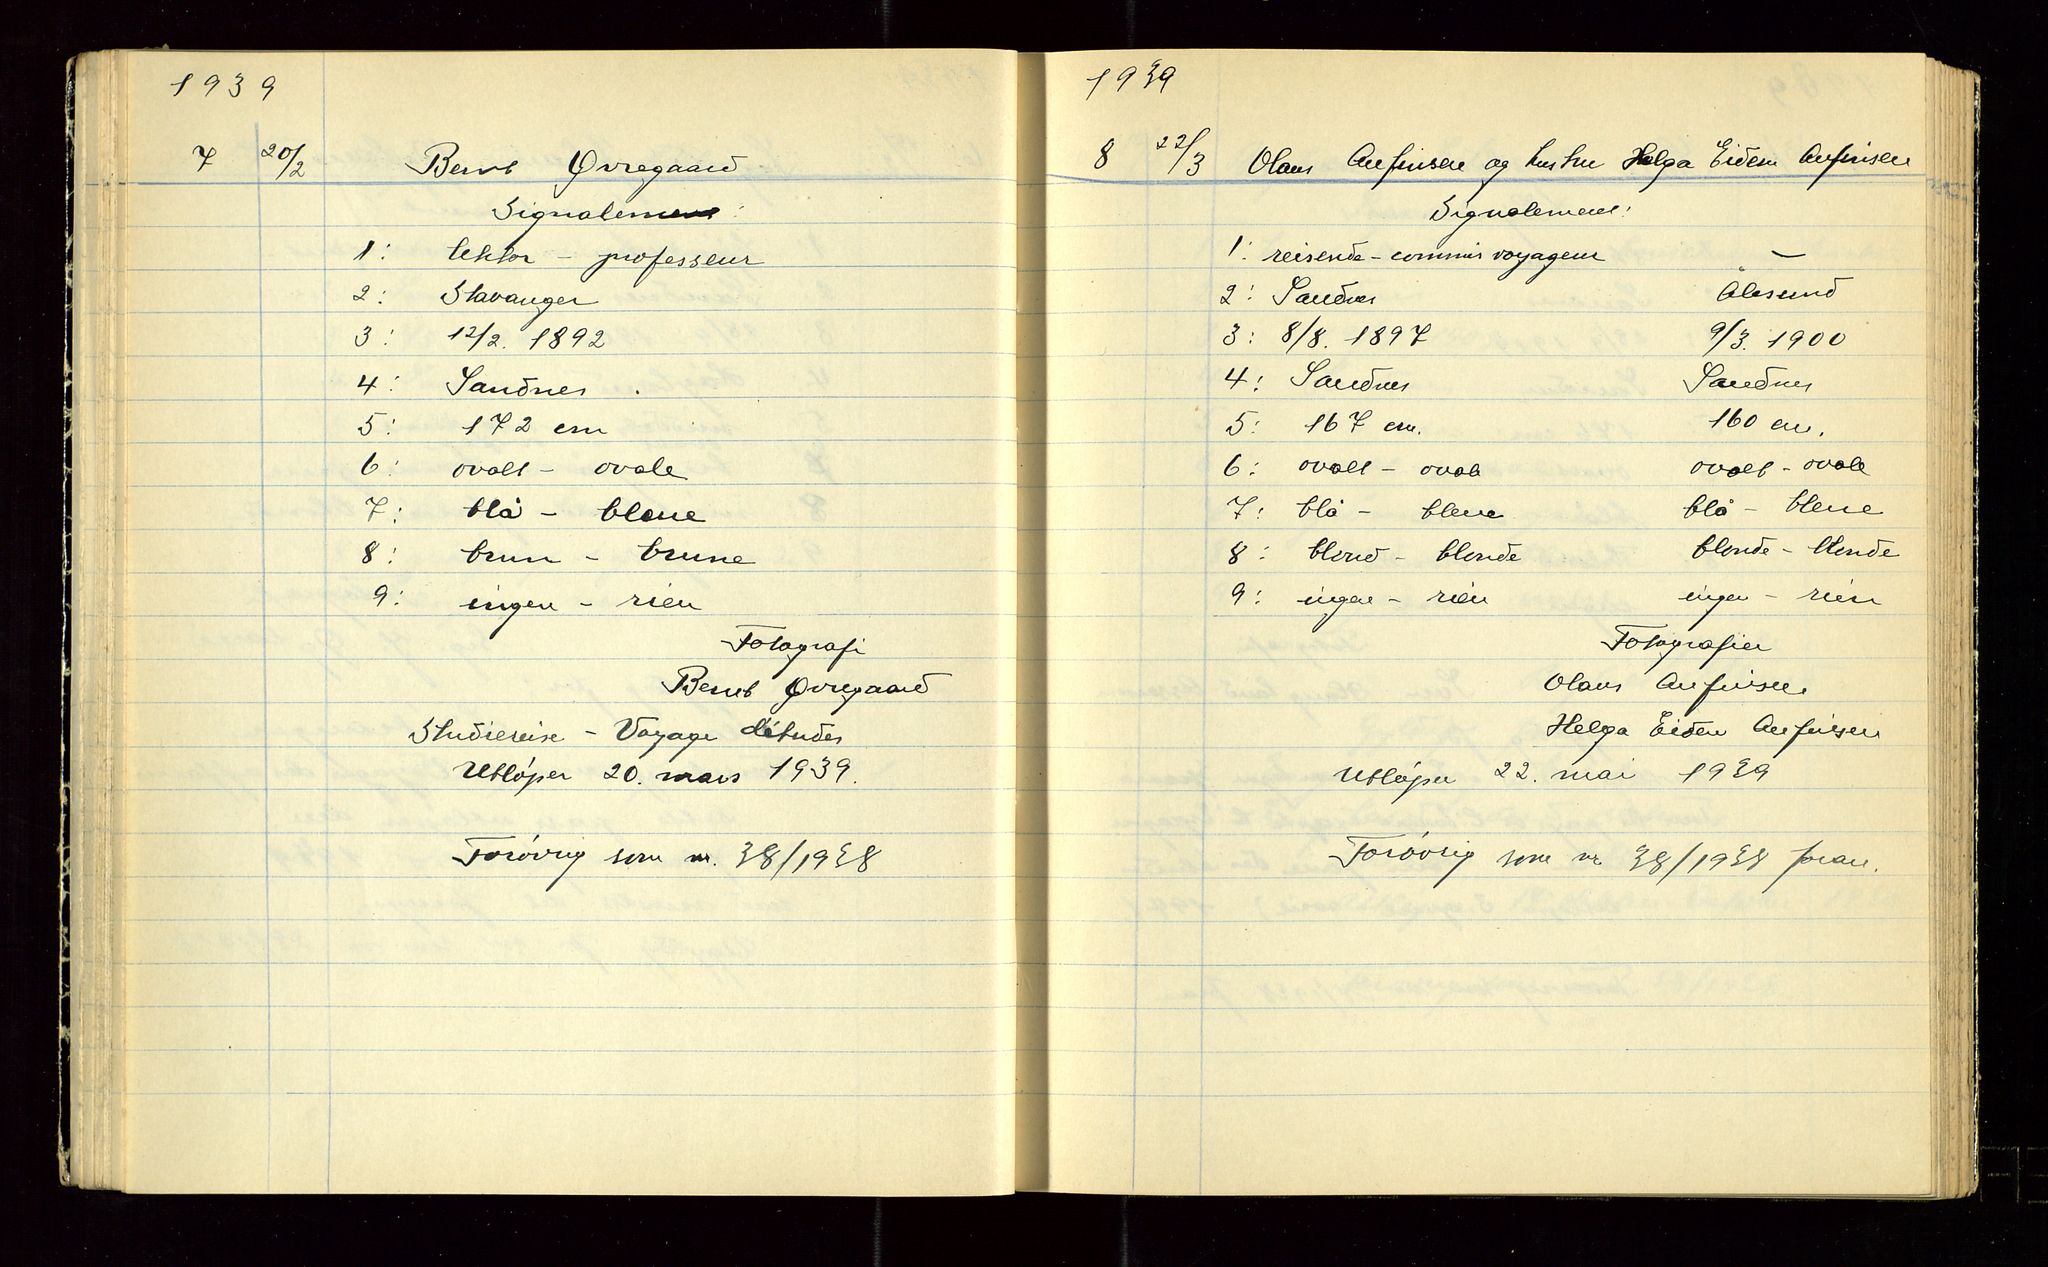 1939
7 20/2 Bernt Øvregaard
Signalement:
1: lektor - professeur
2: Stavanger
3: 12/2. 1892
4: Sandnes
5: 172 cm
6: ovalt - ovale
7: blå - bleue
8: brun - brune
9: ingen - rien
Fotografi
Bernt Øvregaard
Studiereise - Voyage d'études
Utløper 20. mars 1939.
Forøvrig som nr. 38/1938
1939
8 22/3 Olaus Anfinsen og hustru Helga Eiden Anfinsen
Signalement:
1: reisende - commis voyageur —
2: Sandnes Ålesund
3: 8/8. 1897 9/3. 1900
4: Sandnes Sandnes
5: 167 cm. 160 cm.
6: ovalt - ovale ovalt - ovale
7: blå - bleue blå - bleue
8: blond - blonde blonde - blonde
9: ingen - rien ingen - rien
Fotografier
Olaus Anfinsen
Helga Eiden Anfinsen
Utløper 22. mai 1939
Forøvrig som nr 38/1938 foran.